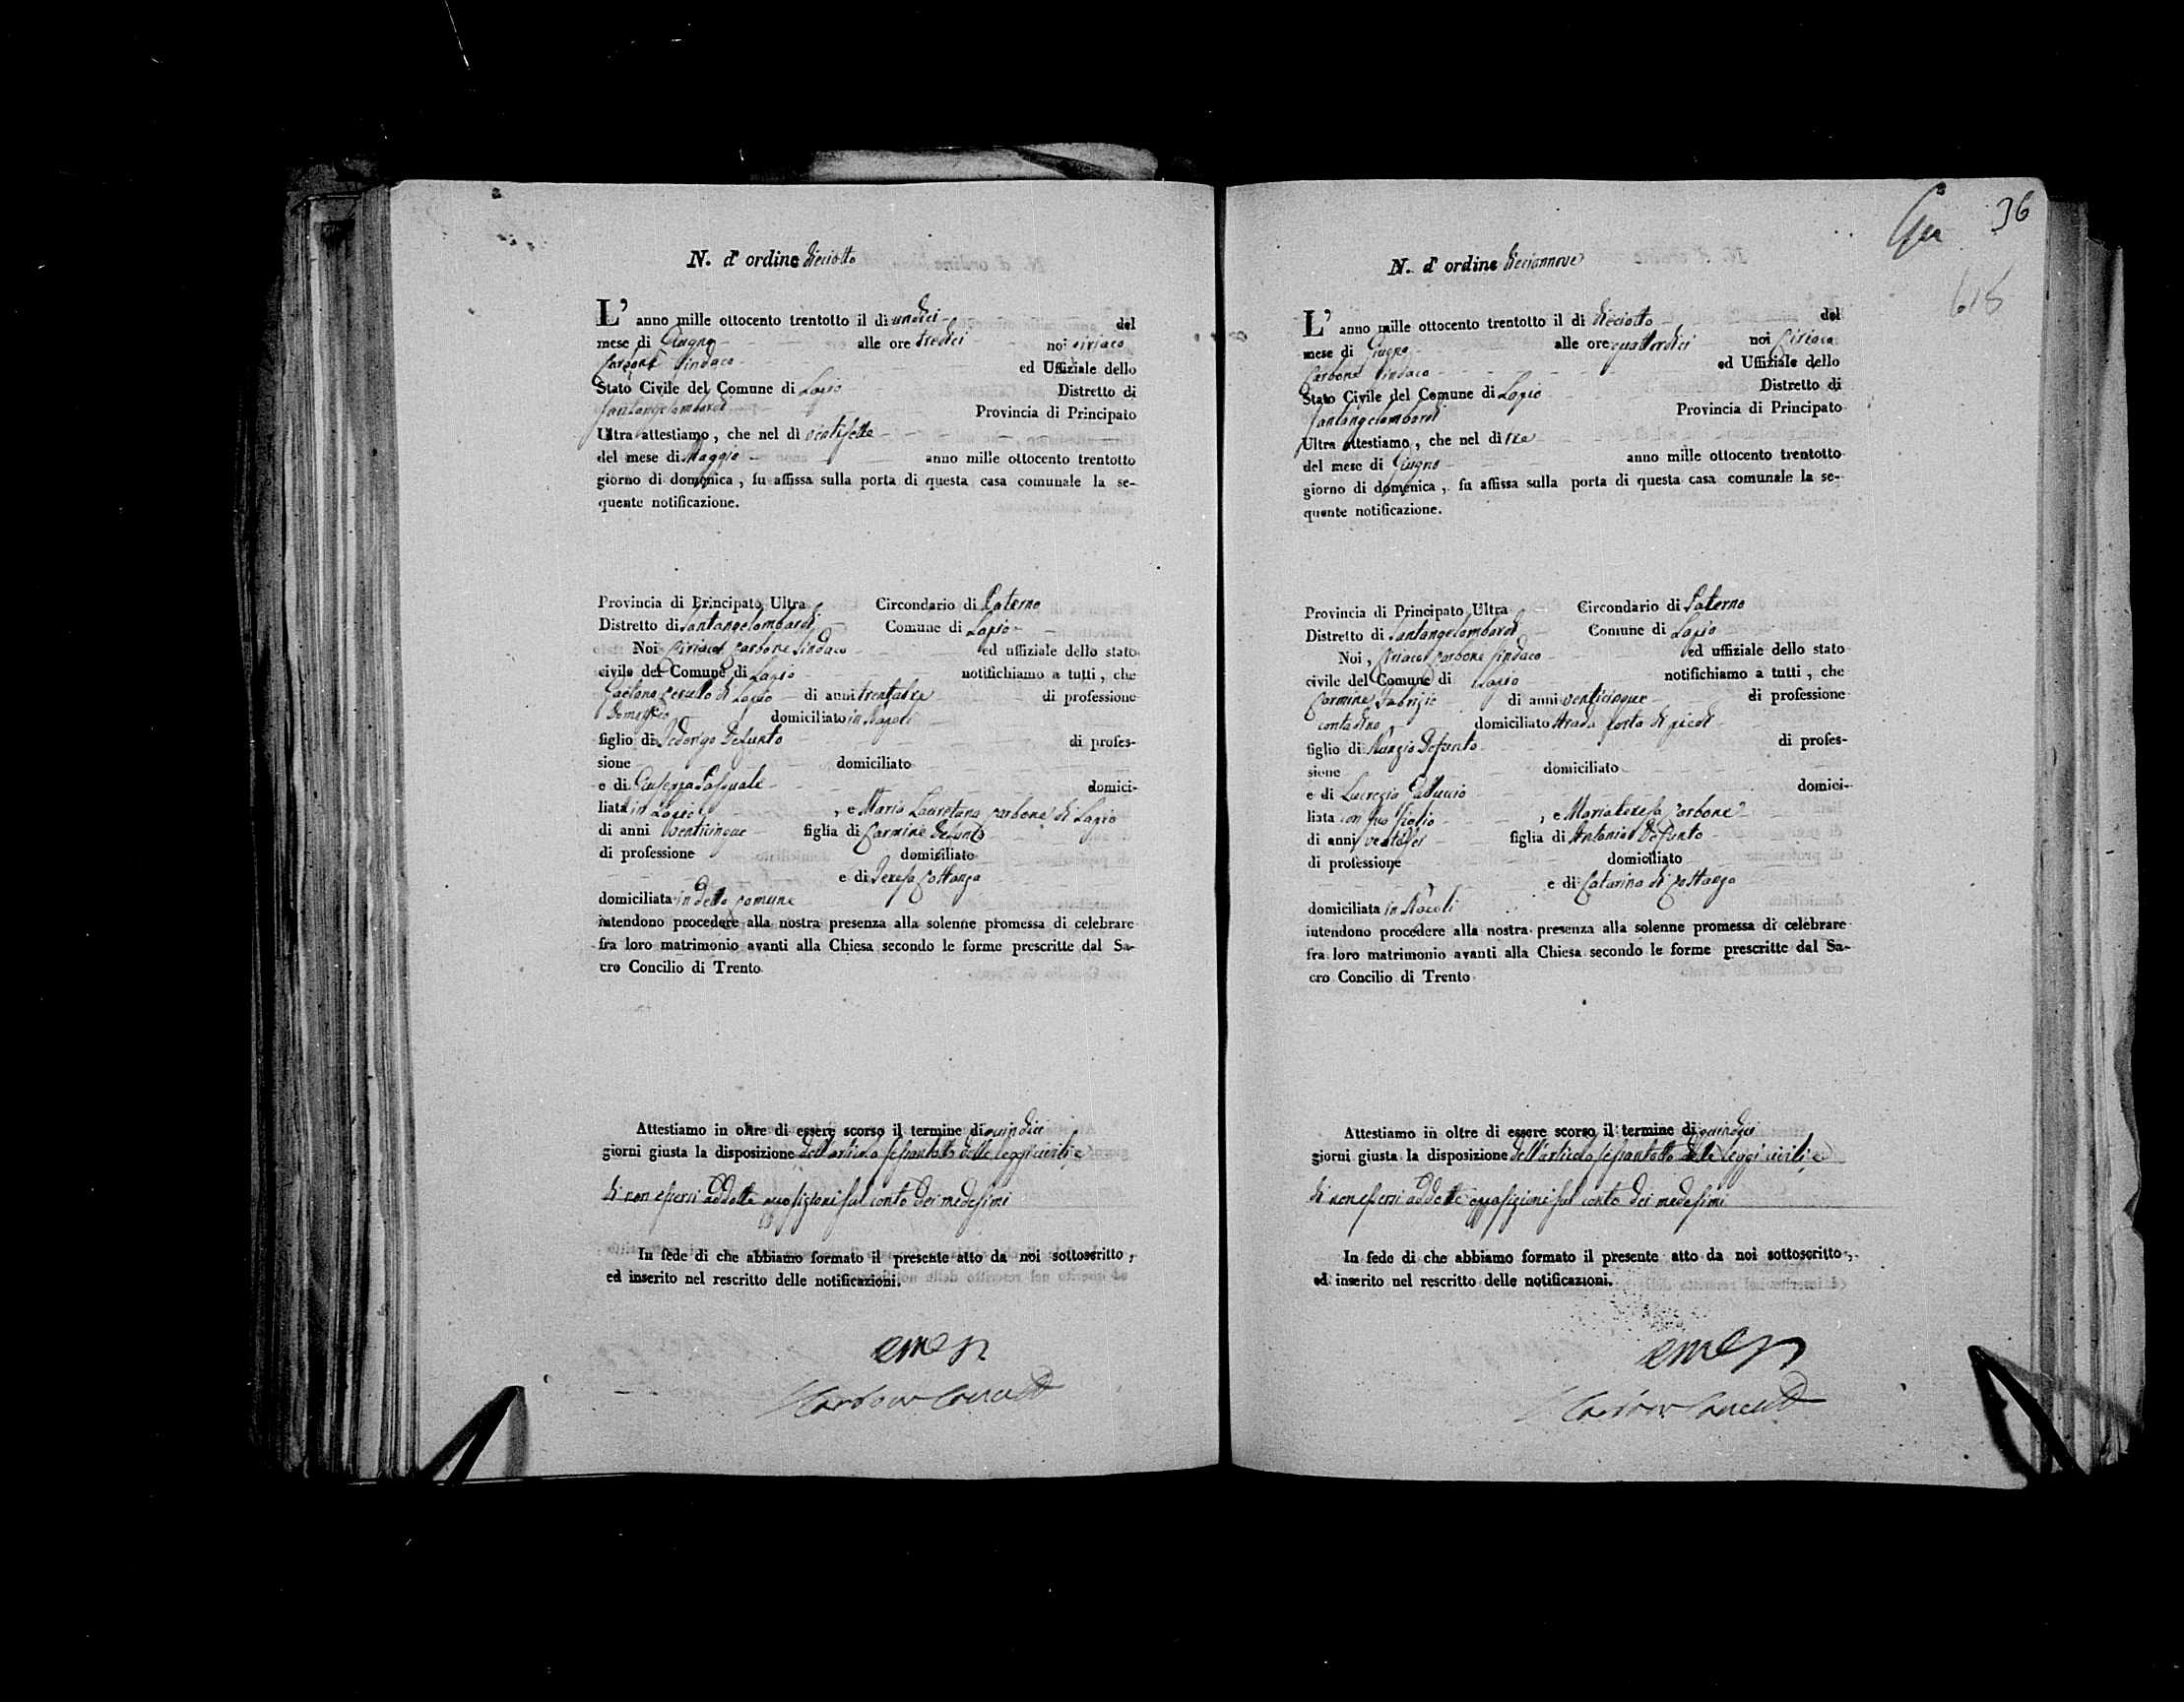 N. d' ordine dieciotto
L' anno mille ottocento trentotto il dì undici del
mese di Giugno alle ore tredici noi Ciriaco
Carbone Sindaco ed Uffiziale dello
Stato Civile del Comune di Lapio Distretto di
Santangelombardi Provincia di Principato
Ultra attestiamo, che nel dì ventisette
del mese di Maggio anno mille ottocento trentotto
giorno di domenica, fu affissa sulla porta di questa casa comunale la se-
quente notificazione.
Provincia di Principato Ultra Circondario di Paterno
Distretto di Santangelombardi Comune di Lapio
Noi Ciriaco Carbone Sindaco ed uffiziale dello stato
civile del Comune di Lapio notifichiamo a tutti, che
Gaetano Cerullo di Lapio di anni trentatre di professione
Domestico domiciliato in Napoli
figlio di Federigo Defunto di profes-
sione domiciliato
e di Giuseppa Pasquale domici-
liata in Lapio, e Maria Lauretana Carbone di Lapio
di anni venticinque figlia di Carmine Defunto
di professione domiciliato
e di Teresa Costanza
domiciliata in detto Comune
intendono procedere alla nostra presenza alla solenne promessa di celebrare
fra loro matrimonio avanti alla Chiesa secondo le forme prescritte dal Sa-
cro Concilio di Trento
Attestiamo in oltre di essere scorso il termine di quindici
giorni giusta la disposizione dell'articolo sessantotto delle leggi civili, e
di non essersi addotte opposizioni sul conto dei medesimi
In fede di che abbiamo formato il presente atto da noi sottoscritto,
ed inserito nel rescritto delle notificazioni.
36
618
N. d' ordine diecinnove
L' anno mille ottocento trentotto il dì dieciotto del
mese di Giugno alle ore quattordici noi Ciriaco
Carbone Sindaco ed Uffiziale dello
Stato Civile del Comune di Lapio Distretto di
Santangelombardi Provincia di Principato
Ultra attestiamo, che nel dì tre
del mese di Giugno anno mille ottocento trentotto
giorno di domenica, fu affissa sulla porta di questa casa comunale la se-
quente notificazione.
Provincia di Principato Ultra Circondario di Paterno
Distretto di Santangelombardi Comune di Lapio
Noi, Ciriaco Carbone Sindaco ed uffiziale dello stato
civile del Comune di Lapio notifichiamo a tutti, che
Carmine Fabrizio di anni venticinque di professione
contadino domiciliato Strada Porta di piedi
figlio di Nunzio Defunto di profes-
sione domiciliato
e di Lucrezia Galluccio domici-
liata con suo figlio, e Mariateresa Carbone
di anni ventisei figlia di Antonio Defunto
di professione domiciliato
e di Catarina di Costanza
domiciliata in
intendono procedere alla nostra presenza alla solenne promessa di celebrare
fra loro matrimonio avanti alla Chiesa secondo le forme prescritte dal Sa-
cro Concilio di Trento
Attestiamo in oltre di essere scorso il termine di quindici
giorni giusta la disposizione dell'articolo sessantotto delle leggi civili, e
di non essersi addotte opposizioni sul conto dei medesimi
In fede di che abbiamo formato il presente atto da noi sottoscritto,
ed inserito nel rescritto delle notificazioni.